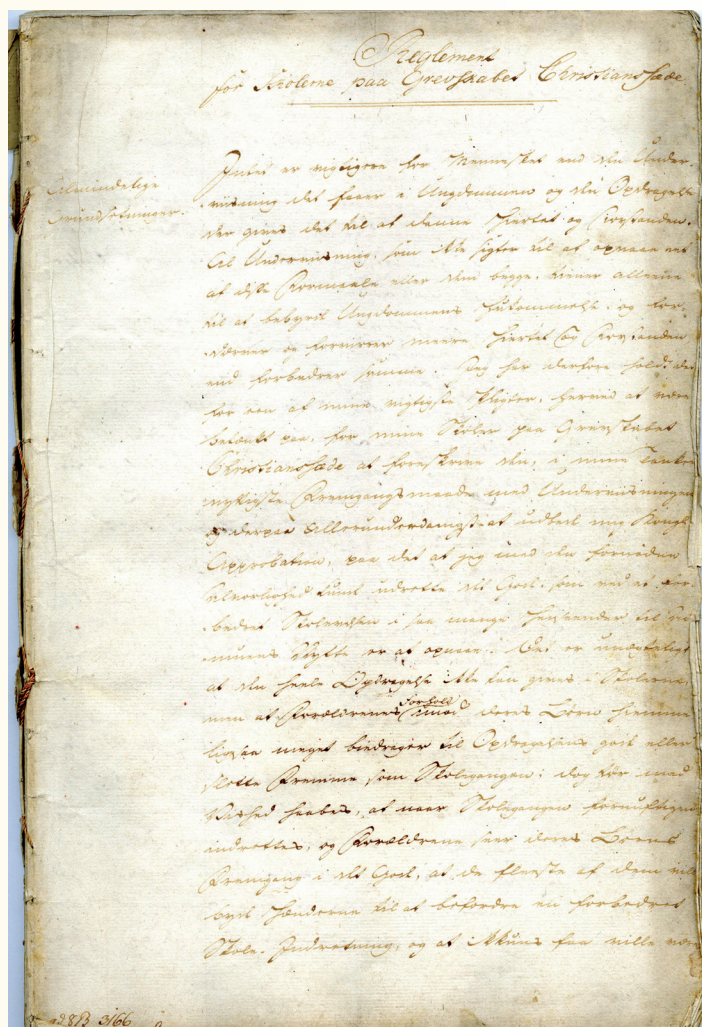 Reglement
for Skolerne paa Grevskabet Christianssæde
Almindelige
Grundsætninger.
Intet er vigtigere for Mennesket end den Under-
viisning det faaer i Ungdommen og den Opdragelse
der gives det til at danne Hiertet og Forstanden.
Al Underviisning, som ikke sigter til at opnaae eet
af disse Formaale eller dem begge, tiener alleene
til at bebyrde Ungdommens Hukommelse, og for-
værrer og forvirrer meere Hiertet og Forstanden
end forbedrer samme. Jeg har derfore holdt det
for een af mine vigtigste Pligter, herved at være
betænkt paa, for mine Skoler paa Grevskabet
Christianssæde at foreskrive den, i mine Tanker
nyttigste Fremgangsmaade med Underviisningen
og derpaa Allerunderdanigst at udbede mig Kongl.
Approbation, paa det at jeg med den fornødne
Alvorlighed kunde udrette alt Godt, som ved at for-
bedre Skolevæsen i saa mange Henseender til
Nytte er at opnaae. Det er unægteligt
at den heele Opdragelse ikke kan gives i Skolerne
men at Forældrenes Forhold imod deres Børn hiemme
ligesaa meget bidrager til Opdragelsens god eller
slette Fremme, som Skolegangen; dog tør med
Vished haabes, at naar Skolegangen fornuftigen
indrettes, og Forældrene seer deres Børns
Fremgang i alt Godt, at de fleeste af dem vil
byde Hænderne til at befordre en forbedret
Skole-Indretning, og at ikkuns faa ville være
ad 8B 3166